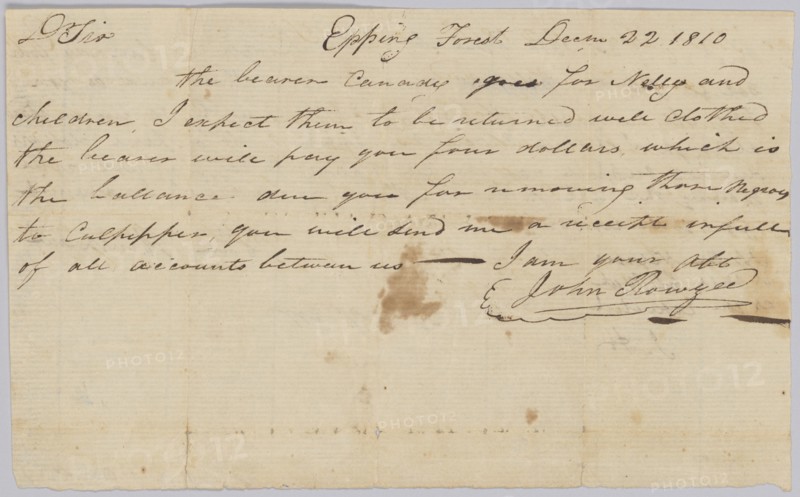 Dr Sir Epping Forest Decm 22 1810
the bearer Canady goes for Nelly and
children, I expect them to be returned well clothed
the bearer will pay you four dollars which is
the ballance due you for removing those Negroes
to Culpepper, you will send me a receipt infull
of all accounts between us — I am your Obt
John Rowzee
PHOTO12